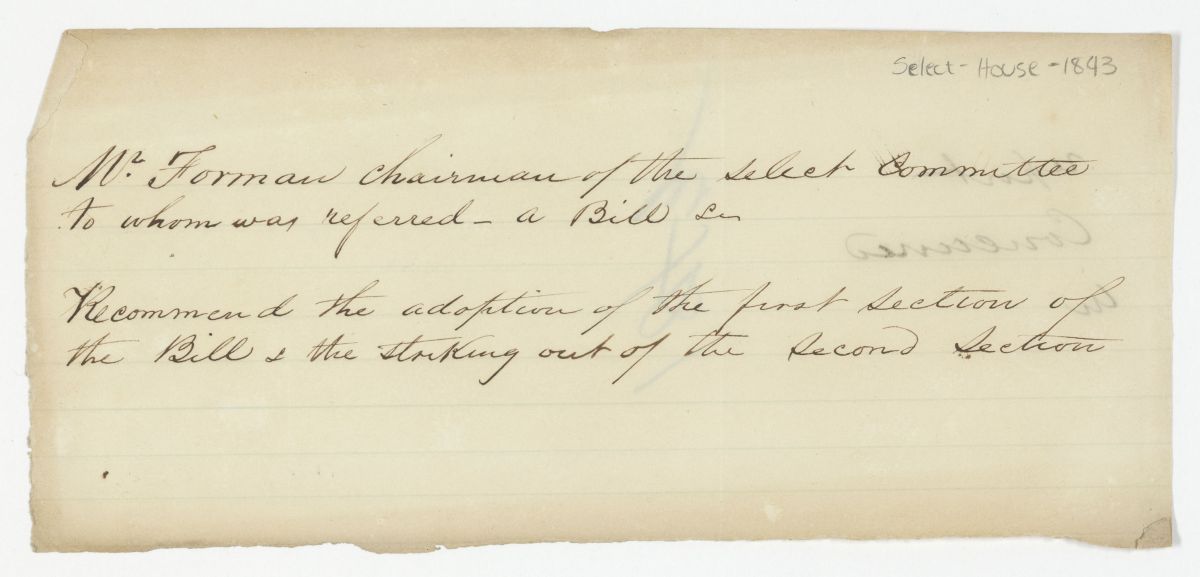 Select - House - 1843
Mr. Forman chairman of the select Committee
to whom was referred - a Bill &c
Recommend the adoption of the first section of
the Bill & the striking out of the second section